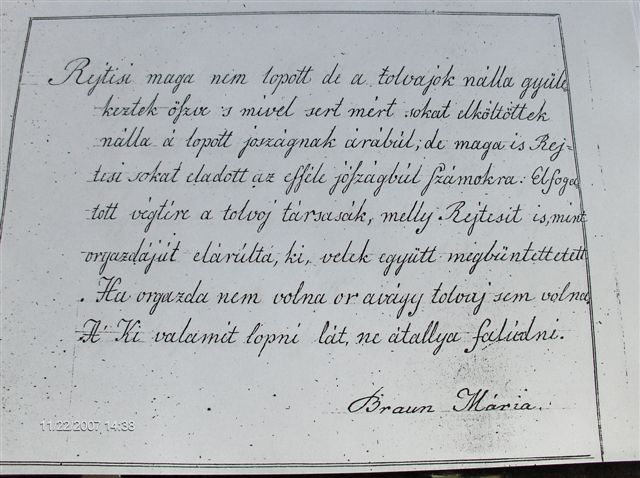 Rejtisi maga nem lopott de a tolvajok nálla gyüle
keztek öſzve 's mivel sert mért sokat elköltöttek
nálla á lopott joszágnak árábúl; de maga is Rej-
tisi sokat eladott az efféle jóſzágbúl ſzámokra. Elfoga
tott végtére a tolvoj társasák, melly Rejtesit is, mint
orgazdájút elárúlta, ki, velek együtt megbüntettetett
. Ha orgazda nem volna or avágy tolvaj sem volna.
A' Ki valamit lopni lát, ne átallya
Braun Mária.
11.22.2007, 14:38